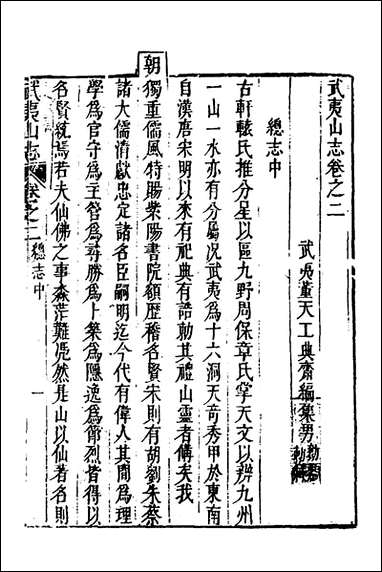 武夷山志卷之二
武夷董天工典齋編集男
總志中
古軒轅氏推分星以區九野周保章氏掌天文以辨九州
一山一水亦有分屬况武夷為十六洞天奇秀甲於東南
自漢唐宋明以來有祀典有誥勅其禮山靈者備矣我
朝獨重儒風特賜紫陽書院額歷稽名賢宋則有胡劉朱蔡
諸大儒清獻忠定諸名臣嗣明迄今代有偉人其間為理
學為官守為主管為尋勝為卜築為隱逸為節烈皆得以
名賢統焉若夫仙佛之事淼茫難慿然是山以仙著名則
武夷山志
卷之二 總志中
一